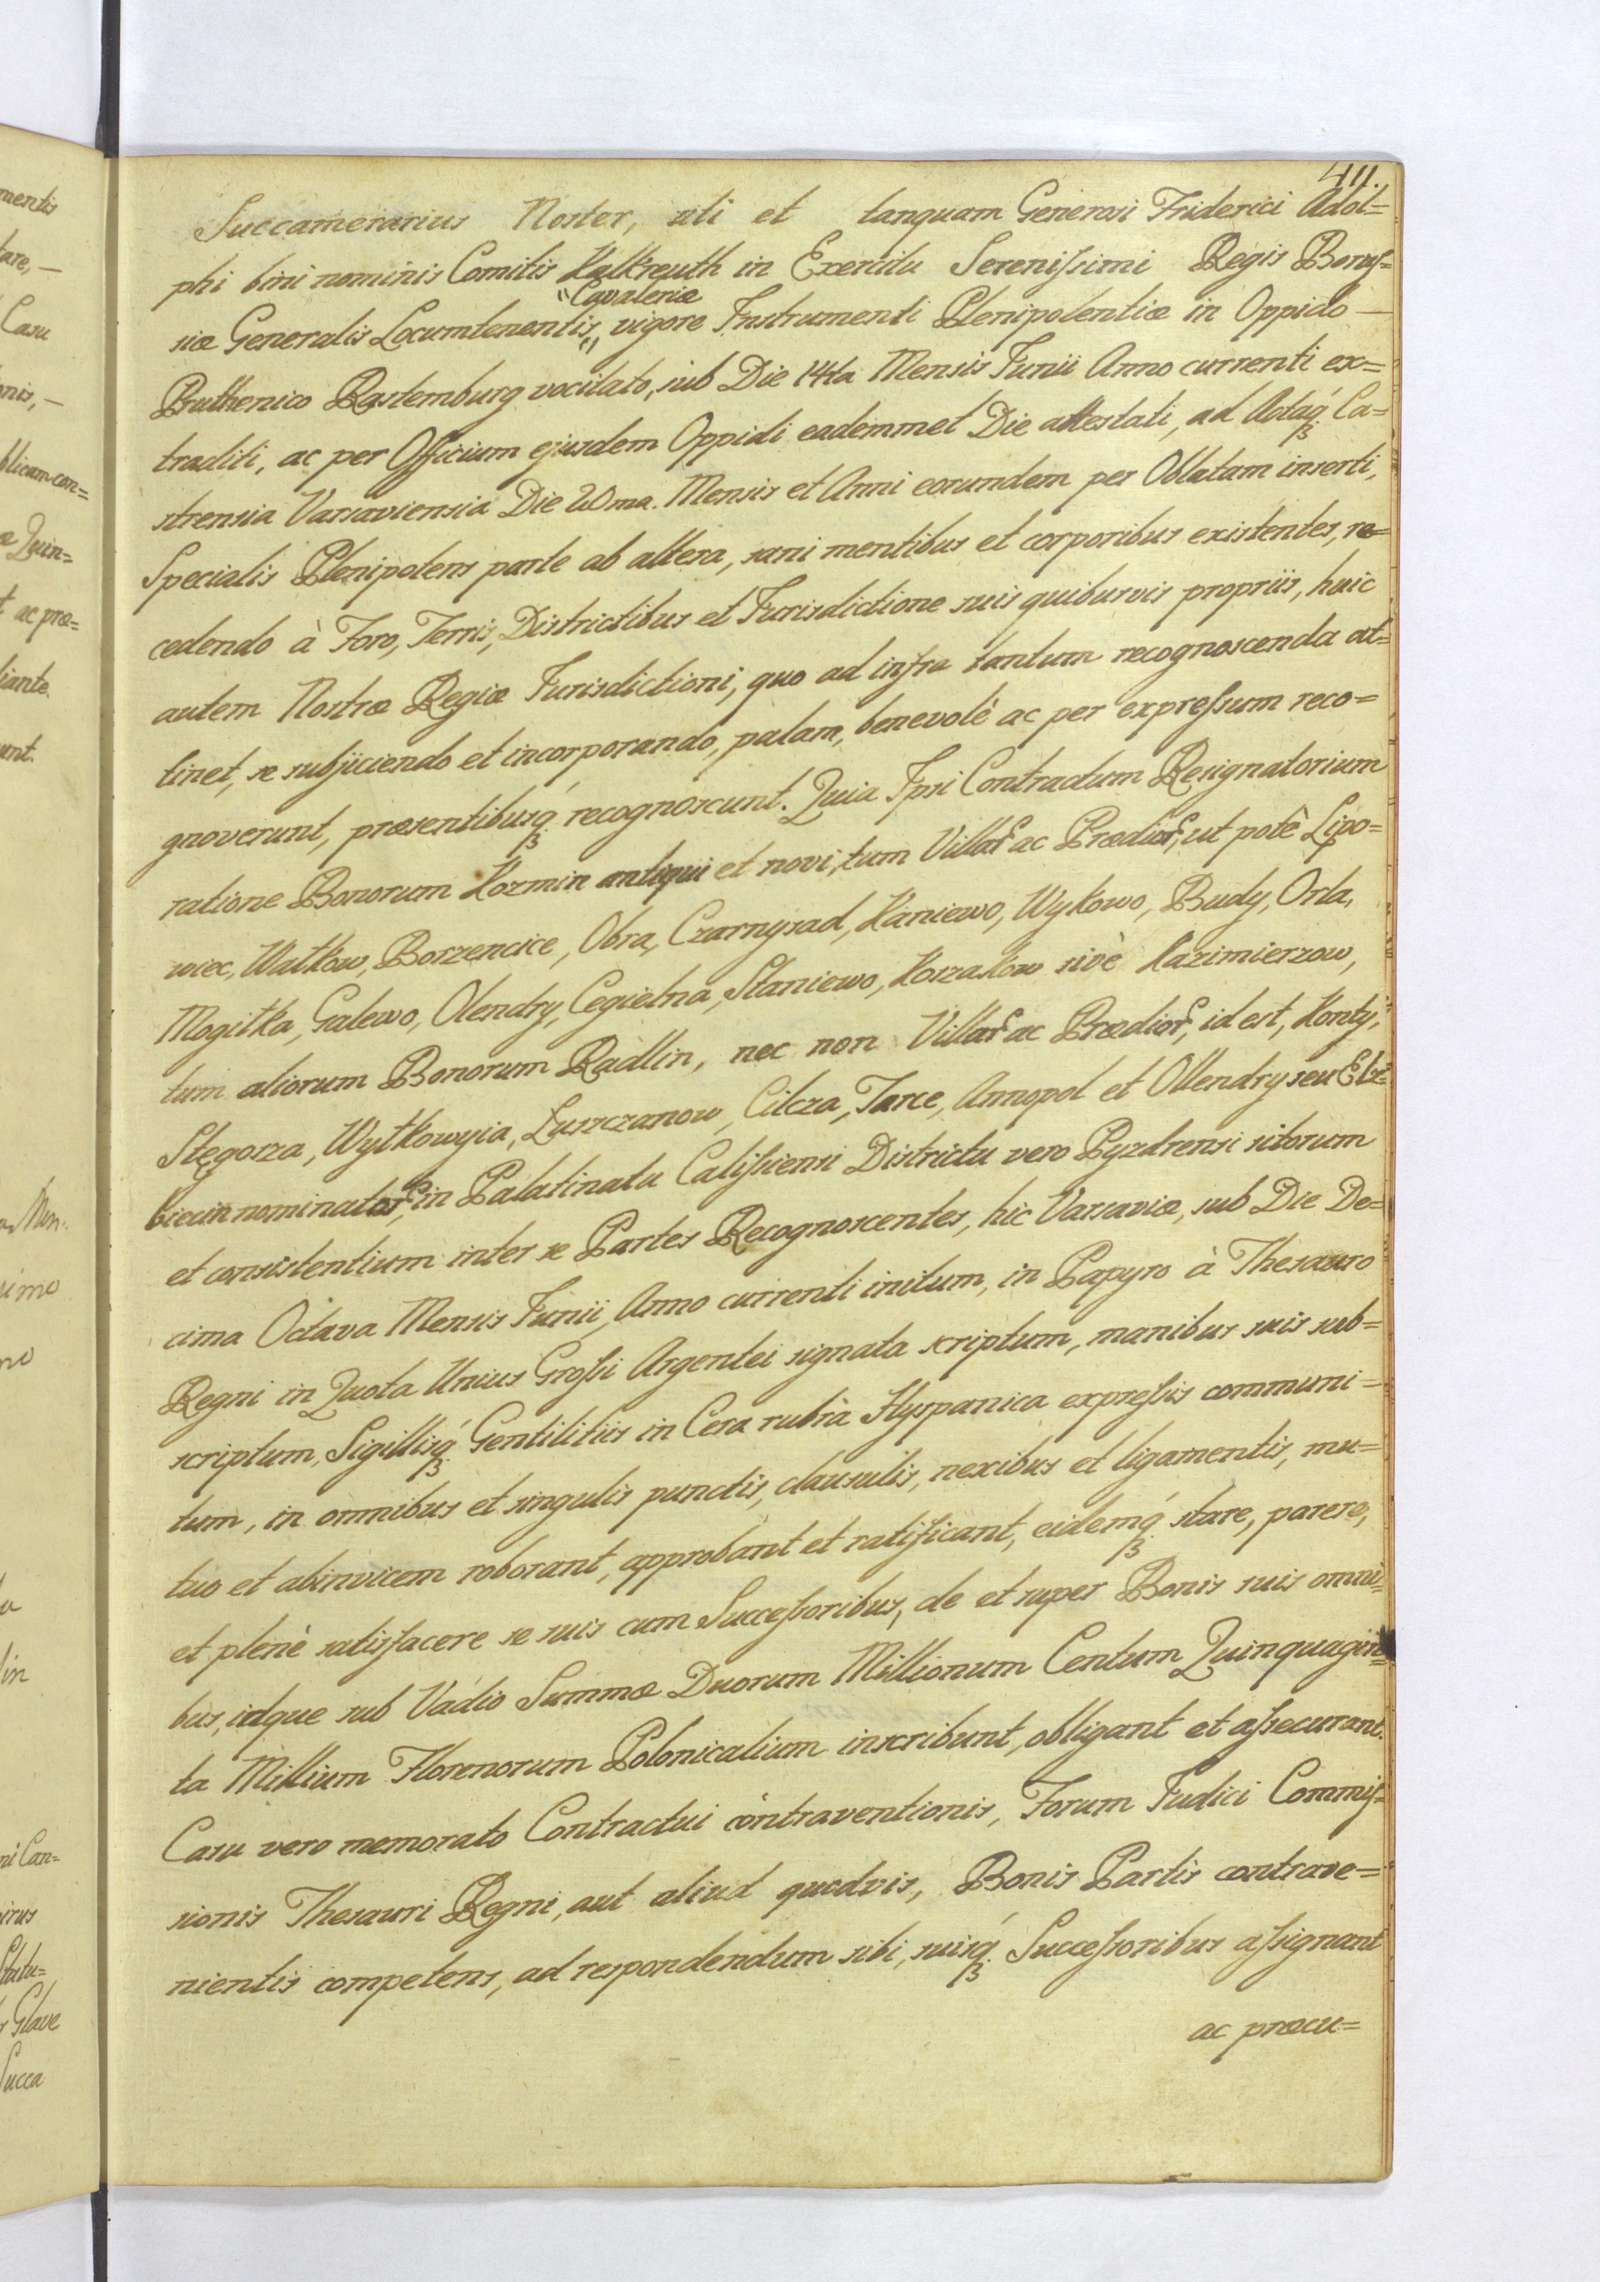 411.
Succamerarius Noster, uti et tanquam Generosi Friderici Adol=
phi bini nominis Comitis Kalkreuth in Exercitu Serenissimi Regis Borus=
siæ Generalis Locumtenentis "Cavaleriæ" vigore Instrumenti Plenipotentiæ in Oppido —
Pruthenico Rastemburg vocitato, sub Die 14ta Mensis Junii Anno currenti ex=
traditi, ac per Officium ejusdem Oppidi eademmet Die attestati, ad Actaq́ꝫ Ca=
strensia Varsaviensia Die 20ma. Mensis et Anni eorundem per Oblatam inserti,
Specialis Plenipotens parte ab altera, sani mentibus et corporibus existentes, re=
cedendo à Foro, Terris, Districtibus et Jurisdictione suis quibusvis propriis, huic
autem Nostræ Regiæ Jurisdictioni, quo ad infra tantum recognoscenda at=
tinet, se subjiciendo et incorporando, palam, benevolè ac per expressum reco=
gnoverunt, præsentibusq́ꝫ recognoscunt. Quia Ipsi Contractum Resignatorium
ratione Bonorum Kozmin antiqui et novi, tum Villaꝝ ac Prædioꝝ, ut potè Lipo=
wiec, Wałkow, Borzencice, Obra, Czarnysad, Kaniewo, Wykowo, Budy, Orla,
Mogiłka, Galewo, Olendry, Cegielna, Staniewo, Korzakow sivè Kazimierzow,
tum aliorum Bonorum Radlin, nec non Villaꝝ ac Prædioꝝ, id est, Konty,
Stęgosza, Wyłkowyia, Luszczanow, Cilcza, Tarce, Annopol et Ollendry seu Elż=
biecin nominatoꝝ, in Palatinatu Calissiensi Districtu vero Pyzdrensi sitorum
et consistentium inter se Partes Recognoscentes, hic Varsaviæ, sub Die De=
cima Octava Mensis Junii, Anno currenti initum, in Papyro à Thesauro
Regni in Quota Unius Grossi Argentei signata scriptum, manibus suis sub=
scriptum, Sigillisq́ꝫ Gentilitiis in Cera rubra Hyspanica expressis communi=
tum, in omnibus et singulis punctis, clausulis, nexibus et ligamentis, mu=
tuo et abinvicem roborant, approbant et ratificant, eidemq́ꝫ stare, parere,
et plenè satisfacere se suis cum Successoribus, de et super Bonis suis omni=
bus, idque sub Vadio Summæ Duorum Millionum Centum Quinquagin=
ta Millium Florenorum Polonicalium inscribunt, obligant et assecurant.
Casu vero memorato Contractui contraventionis, Forum Judici Commis=
sionis Thesauri Regni, aut aliud quodvis, Bonis Partis contrave=
nientis competens, ad respondendum sibi, suisq́ꝫ Successoribus assignant
ac præcu=